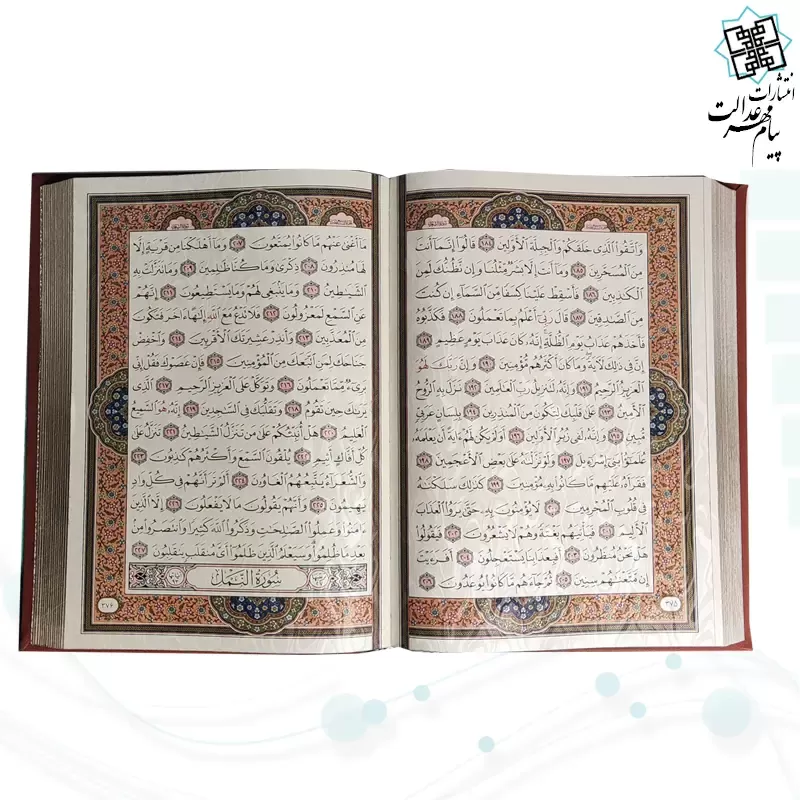 انتشارات
پیام مهر عدالت
وَٱتَّقُوا۟ ٱلَّذِى خَلَقَكُمْ وَٱلْجِبِلَّةَ ٱلْأَوَّلِينَ ١٨٤ قَالُوٓا۟ إِنَّمَآ أَنتَ
مِنَ ٱلْمُسَحَّرِينَ ١٨٥ وَمَآ أَنتَ إِلَّا بَشَرٌ مِّثْلُنَا وَإِن نَّظُنُّكَ لَمِنَ
ٱلْكَـٰذِبِينَ ١٨٦ فَأَسْقِطْ عَلَيْنَا كِسَفًا مِّنَ ٱلسَّمَآءِ إِن كُنتَ
مِنَ ٱلصَّـٰدِقِينَ ١٨٧ قَالَ رَبِّىٓ أَعْلَمُ بِمَا تَعْمَلُونَ ١٨٨ فَكَذَّبُوهُ
فَأَخَذَهُمْ عَذَابُ يَوْمِ ٱلظُّلَّةِ إِنَّهُۥ كَانَ عَذَابَ يَوْمٍ عَظِيمٍ ١٨٩
إِنَّ فِى ذَٰلِكَ لَـَٔايَةً وَمَا كَانَ أَكْثَرُهُم مُّؤْمِنِينَ ١٩٠ وَإِنَّ رَبَّكَ لَهُوَ
ٱلْعَزِيزُ ٱلرَّحِيمُ ١٩١ وَإِنَّهُۥ لَتَنزِيلُ رَبِّ ٱلْعَـٰلَمِينَ ١٩٢ نَزَلَ بِهِ ٱلرُّوحُ
ٱلْأَمِينُ ١٩٣ عَلَىٰ قَلْبِكَ لِتَكُونَ مِنَ ٱلْمُنذِرِينَ ١٩٤ بِلِسَانٍ عَرَبِىٍّ
مُّبِينٍ ١٩٥ وَإِنَّهُۥ لَفِى زُبُرِ ٱلْأَوَّلِينَ ١٩٦ أَوَلَمْ يَكُن لَّهُمْ ءَايَةً أَن يَعْلَمَهُۥ
عُلَمَـٰٓؤُا۟ بَنِىٓ إِسْرَٰٓءِيلَ ١٩٧ وَلَوْ نَزَّلْنَـٰهُ عَلَىٰ بَعْضِ ٱلْأَعْجَمِينَ ١٩٨
فَقَرَأَهُۥ عَلَيْهِم مَّا كَانُوا۟ بِهِۦ مُؤْمِنِينَ ١٩٩ كَذَٰلِكَ سَلَكْنَـٰهُ
فِى قُلُوبِ ٱلْمُجْرِمِينَ ٢٠٠ لَا يُؤْمِنُونَ بِهِۦ حَتَّىٰ يَرَوُا۟ ٱلْعَذَابَ
ٱلْأَلِيمَ ٢٠١ فَيَأْتِيَهُم بَغْتَةً وَهُمْ لَا يَشْعُرُونَ ٢٠٢ فَيَقُولُوا۟
هَلْ نَحْنُ مُنظَرُونَ ٢٠٣ أَفَبِعَذَابِنَا يَسْتَعْجِلُونَ ٢٠٤ أَفَرَءَيْتَ
إِن مَّتَّعْنَـٰهُمْ سِنِينَ ٢٠٥ ثُمَّ جَآءَهُم مَّا كَانُوا۟ يُوعَدُونَ ٢٠٦
٣٧٥
مَآ أَغْنَىٰ عَنْهُم مَّا كَانُوا۟ يُمَتَّعُونَ ٢٠٧ وَمَآ أَهْلَكْنَا مِن قَرْيَةٍ إِلَّا
لَهَا مُنذِرُونَ ٢٠٨ ذِكْرَىٰ وَمَا كُنَّا ظَـٰلِمِينَ ٢٠٩ وَمَا تَنَزَّلَتْ بِهِ
ٱلشَّيَـٰطِينُ ٢١٠ وَمَا يَنۢبَغِى لَهُمْ وَمَا يَسْتَطِيعُونَ ٢١١ إِنَّهُمْ
عَنِ ٱلسَّمْعِ لَمَعْزُولُونَ ٢١٢ فَلَا تَدْعُ مَعَ ٱللَّهِ إِلَـٰهًا ءَاخَرَ فَتَكُونَ
مِنَ ٱلْمُعَذَّبِينَ ٢١٣ وَأَنذِرْ عَشِيرَتَكَ ٱلْأَقْرَبِينَ ٢١٤ وَٱخْفِضْ
جَنَاحَكَ لِمَنِ ٱتَّبَعَكَ مِنَ ٱلْمُؤْمِنِينَ ٢١٥ فَإِنْ عَصَوْكَ فَقُلْ إِنِّى
بَرِىٓءٌ مِّمَّا تَعْمَلُونَ ٢١٦ وَتَوَكَّلْ عَلَى ٱلْعَزِيزِ ٱلرَّحِيمِ ٢١٧ ٱلَّذِى
يَرَىٰكَ حِينَ تَقُومُ ٢١٨ وَتَقَلُّبَكَ فِى ٱلسَّـٰجِدِينَ ٢١٩ إِنَّهُۥ هُوَ ٱلسَّمِيعُ
ٱلْعَلِيمُ ٢٢٠ هَلْ أُنَبِّئُكُمْ عَلَىٰ مَن تَنَزَّلُ ٱلشَّيَـٰطِينُ ٢٢١ تَنَزَّلُ عَلَىٰ
كُلِّ أَفَّاكٍ أَثِيمٍ ٢٢٢ يُلْقُونَ ٱلسَّمْعَ وَأَكْثَرُهُمْ كَـٰذِبُونَ ٢٢٣
وَٱلشُّعَرَآءُ يَتَّبِعُهُمُ ٱلْغَاوُۥنَ ٢٢٤ أَلَمْ تَرَ أَنَّهُمْ فِى كُلِّ وَادٍ
يَهِيمُونَ ٢٢٥ وَأَنَّهُمْ يَقُولُونَ مَا لَا يَفْعَلُونَ ٢٢٦ إِلَّا ٱلَّذِينَ
ءَامَنُوا۟ وَعَمِلُوا۟ ٱلصَّـٰلِحَـٰتِ وَذَكَرُوا۟ ٱللَّهَ كَثِيرًا وَٱنتَصَرُوا۟ مِنۢ
بَعْدِ مَا ظُلِمُوا۟ وَسَيَعْلَمُ ٱلَّذِينَ ظَلَمُوٓا۟ أَىَّ مُنقَلَبٍ يَنقَلِبُونَ ٢٢٧
سُورَةُ ٱلنَّمْلِ
٣٧٦